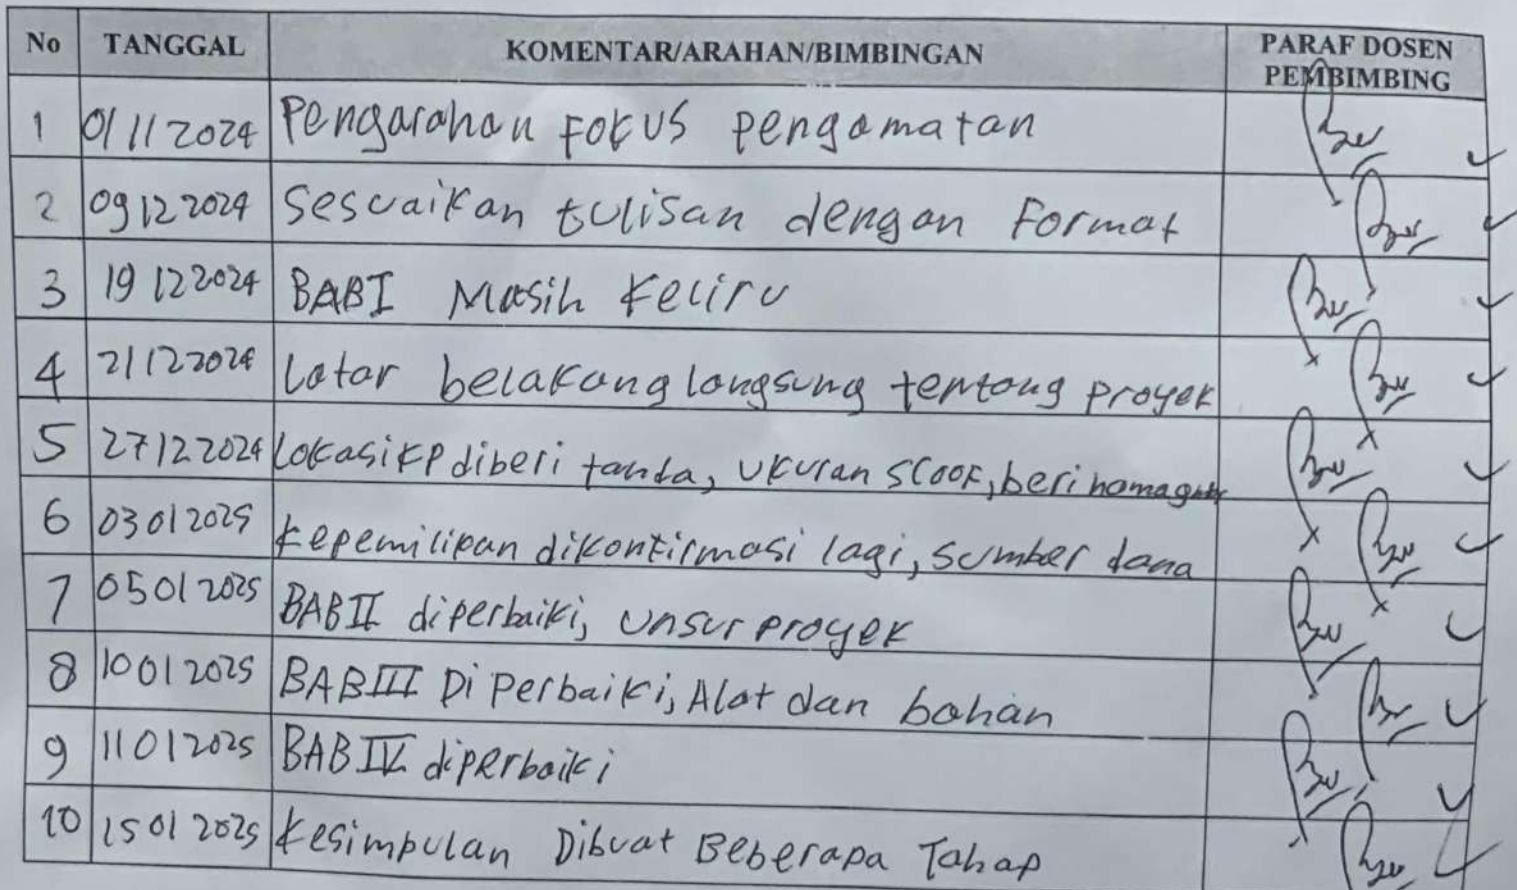 No TANGGAL KOMENTAR/ARAHAN/BIMBINGAN PARAF DOSEN PEMBIMBING
1 01 11 2024 Pengarahan Fokus pengamatan
2 09 12 2024 Sesuaikan tulisan dengan Format
3 19 12 2024 BAB I Masih Keliru
4 21 12 2024 Latar belakang langsung tentang proyek
5 27 12 2024 Lokasi KP diberi tanda, Ukuran SlooF, beri nama
6 03 01 2025 Kepemilikan dikonfirmasi lagi, Sumber dana
7 05 01 2025 BAB II diperbaiki, Unsur proyek
8 10 01 2025 BAB III DiPerbaiki, Alat dan bahan
9 11 01 2025 BAB IV diperbaiki
10 15 01 2025 Kesimpulan Dibuat Beberapa Tahap